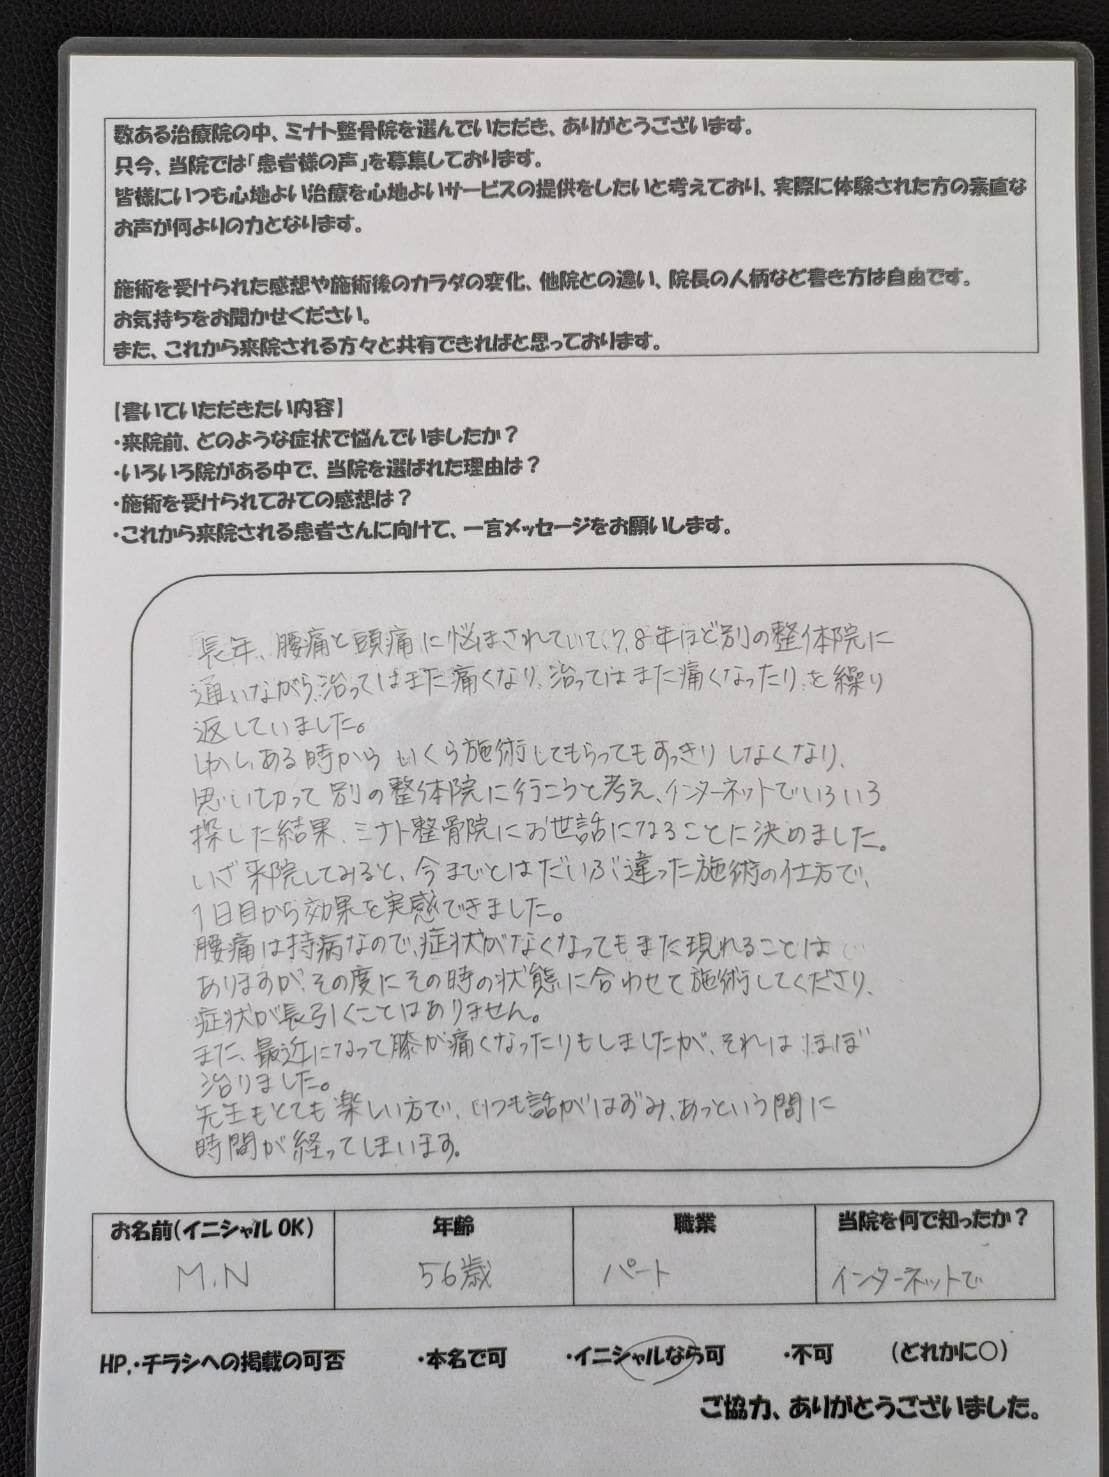 数ある治療院の中、ミナト整骨院を選んでいただき、ありがとうございます。
只今、当院では「患者様の声」を募集しております。
皆様にいつも心地よい治療を心地よいサービスの提供をしたいと考えており、実際に体験された方の素直な
お声が何よりの力となります。
施術を受けられた感想や施術後のカラダの変化、他院との違い、院長の人柄など書き方は自由です。
お気持ちをお聞かせください。
また、これから来院される方々と共有できればと思っております。
【書いていただきたい内容】
・来院前、どのような症状で悩んでいましたか？
・いろいろ院がある中で、当院を選ばれた理由は？
・施術を受けられてみての感想は？
・これから来院される患者さんに向けて、一言メッセージをお願いします。
長年、腰痛と頭痛に悩まされていて、7,8年ほど別の整体院に
通いながら、治ってはまた痛くなり、治ってはまた痛くなったり、を繰り
返していました。
しかし、ある時から いくら施術してもらってもすっきりしなくなり、
思い切って別の整体院に行こうと考え、インターネットでいろいろ
探した結果、ミナト整骨院にお世話になることに決めました。
いざ来院してみると、今までとはだいぶ違った施術の仕方で、
1日目から効果を実感できました。
腰痛は持病なので、症状がなくなってもまた現れることは
ありますが、その度にその時の状態に合わせて施術してくださり、
症状が長引くことはありません。
また、最近になって膝が痛くなったりもしましたが、それはほぼ
治りました。
先生もとても楽しい方で、いつも話がはずみ、あっという間に
時間が経ってしまいます。
お名前(イニシャルOK) 年齢 職業 当院を何で知ったか？
M.N 56歳 パート インターネットで
HP,・チラシへの掲載の可否 ・本名で可 ・イニシャルなら可 ・不可 (どれかに○)
ご協力、ありがとうございました。